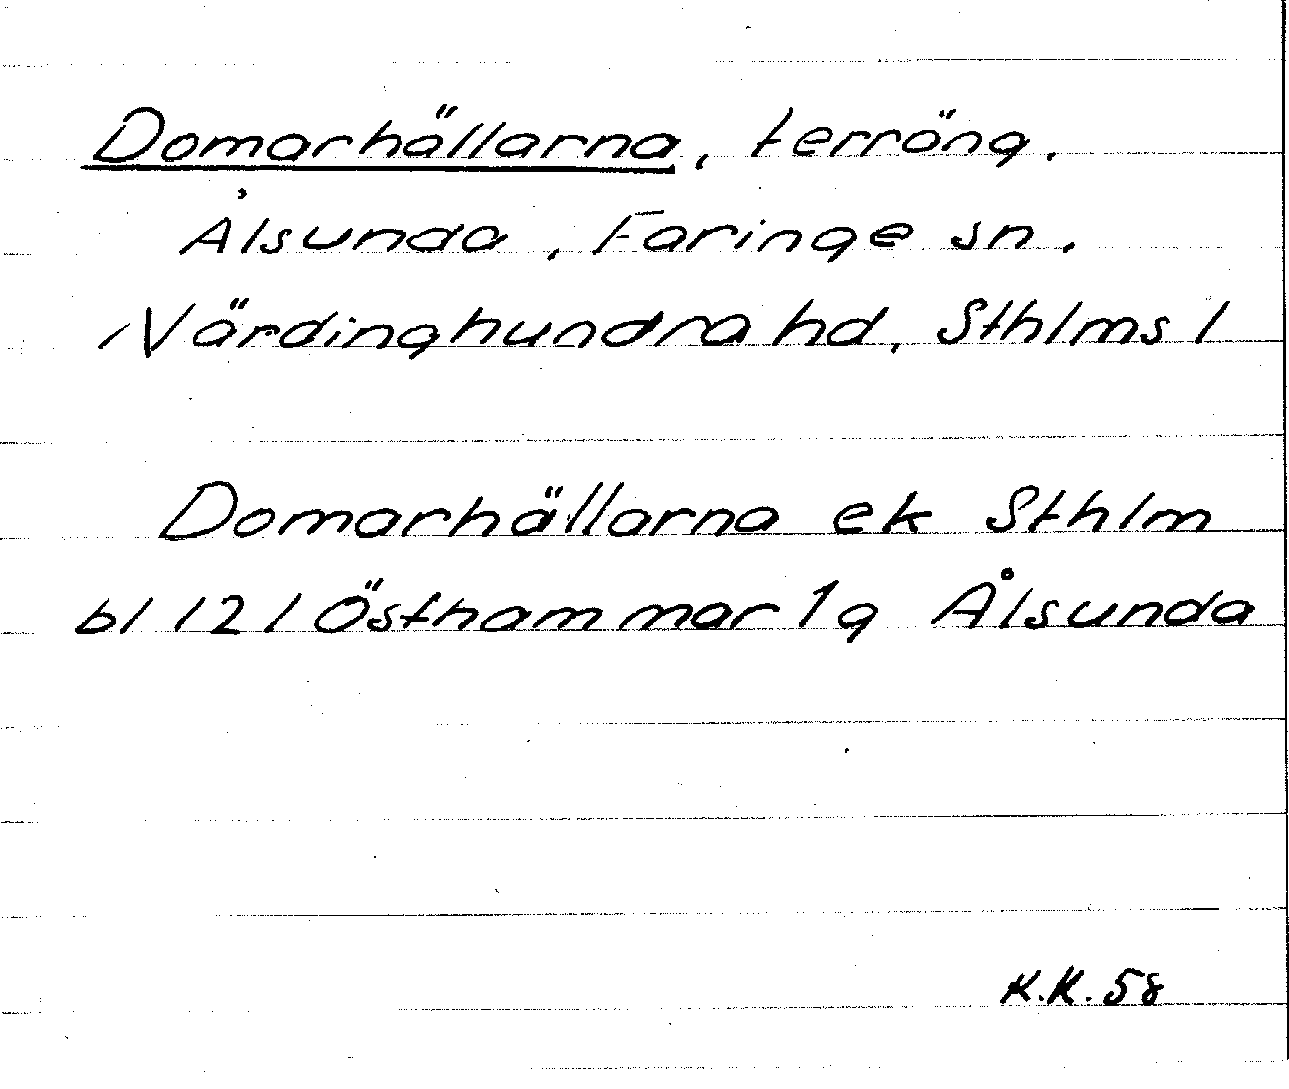 Domarhällarna, terräng.
Ålsunda, Faringe sn.
Närdinghundra hd, Sthlms l
Domarhällarna ek Sthlm
bl 121 Östhammar 1g Ålsunda
K.K. 58